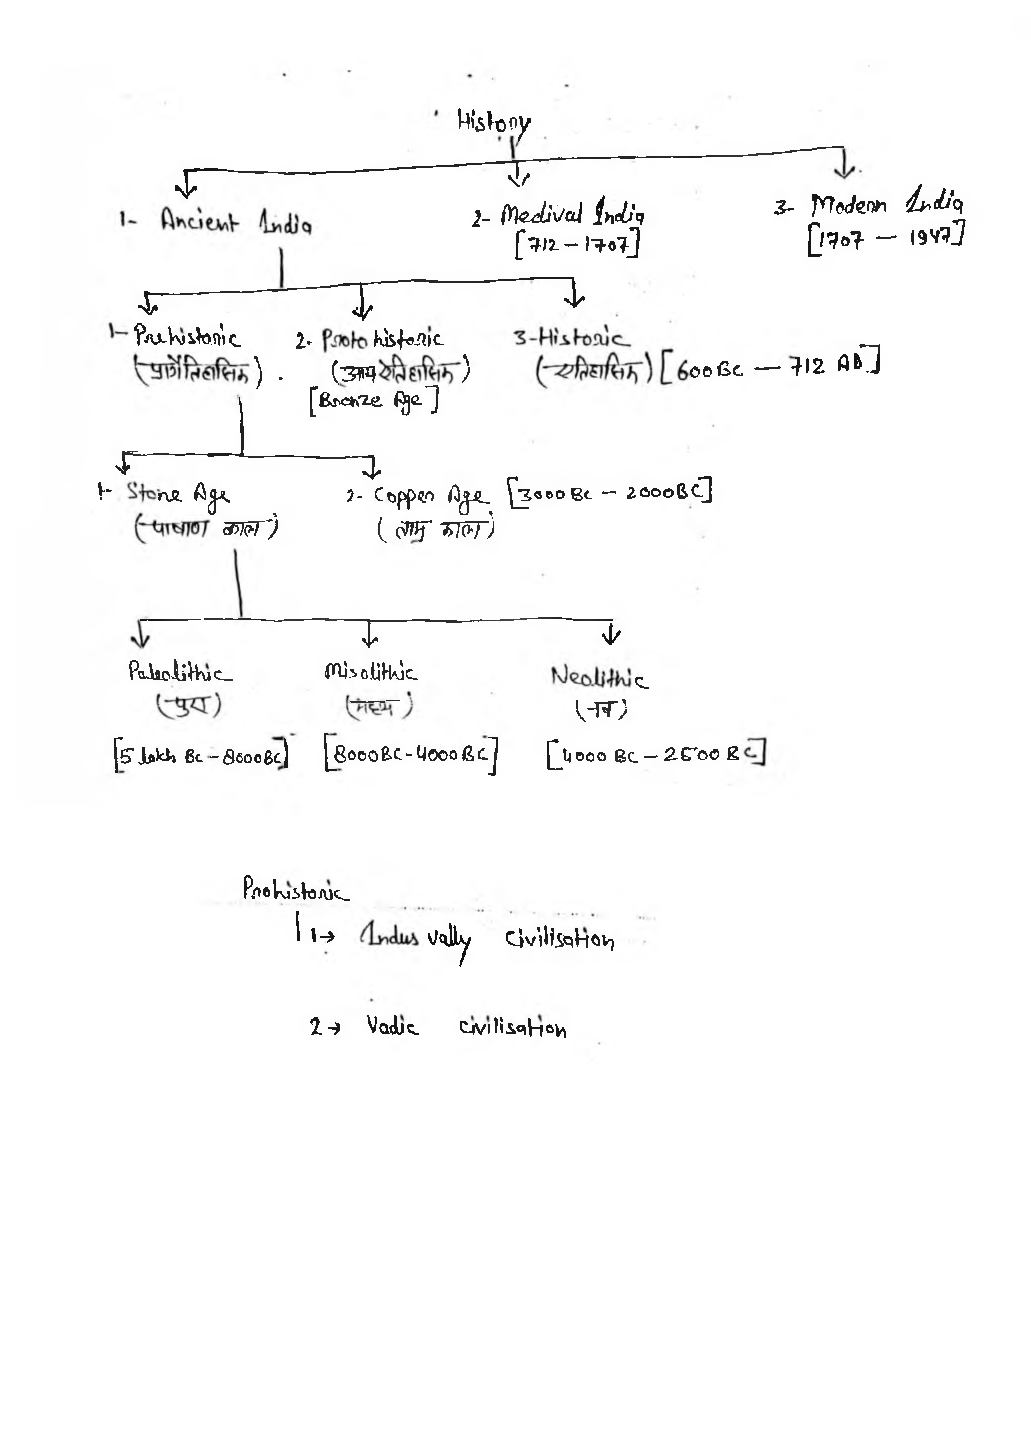 History
1- Ancient India 2- Medival India 3- Modern India
[712 – 1707] [1707 – 1947]
1- Prehistoric 2- Proto historic 3- Historic
(प्रागैतिहासिक) . (आद्य ऐतिहासिक) (ऐतिहासिक) [600 BC — 712 AD]
[Bronze Age]
1- Stone Age 2- Copper Age [3000 BC – 2000 BC]
(पाषाण काल) (ताम्र काल)
Paleolithic Misolithic Neolithic
(पुरा) (मध्य) (नव)
[5 lakh BC – 8000 BC] [8000 BC - 4000 BC] [4000 BC – 2500 BC]
Prohistoric
1→ Indus vally civilisation
2→ Vadic civilisation